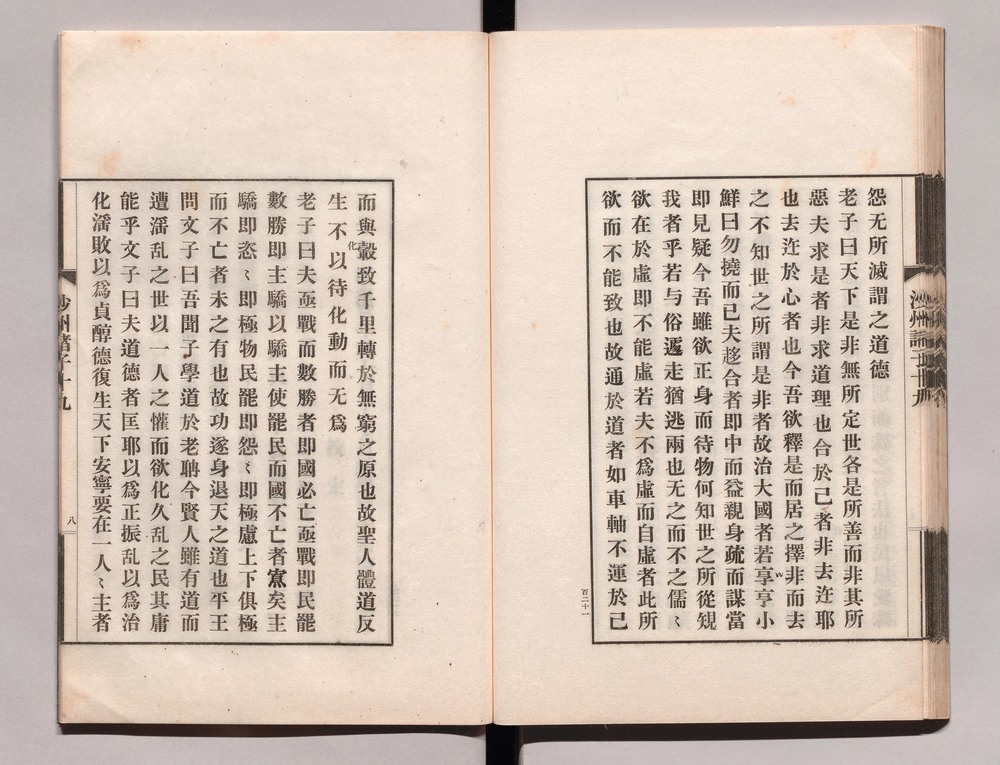 怨无所滅謂之道德
老子曰天下是非無所定世各是所善而非其所
惡夫求是者非求道理也合於己者非去迕耶
也去迕於心者也今吾欲釋是而居之擇非而去
之不知世之所謂是非者故治大國者若享亨小
鮮曰勿撓而已夫趍合者即中而益親身疏而謀當
即見疑今吾雖欲正身而待物何知世之所從䂓
我者乎若与俗遞走猶逃兩也无之而不之儒〻
欲在於虛即不能虛若夫不為虛而自虛者此所
欲而不能致也故通於道者如車軸不運於己
百二十一
而與轂致千里轉於無窮之原也故聖人體道反
化
生不以待化動而无為
老子曰夫亟戰而數勝者即國必亡亟戰即民罷
數勝即主驕以驕主使罷民而國不亡者寡矣主
驕即恣〻即極物民罷即怨〻即極慮上下俱極
而不亡者未之有也故功遂身退天之道也平王
問文子曰吾聞子學道於老聃今賢人雖有道而
遭滛乱之世以一人之懽而欲化久乱之民其庸
能乎文子曰夫道德者匡耶以為正振乱以為治
化滛敗以為貞醇德復生天下安寧要在一人〻主者
沙州諸子十九
八